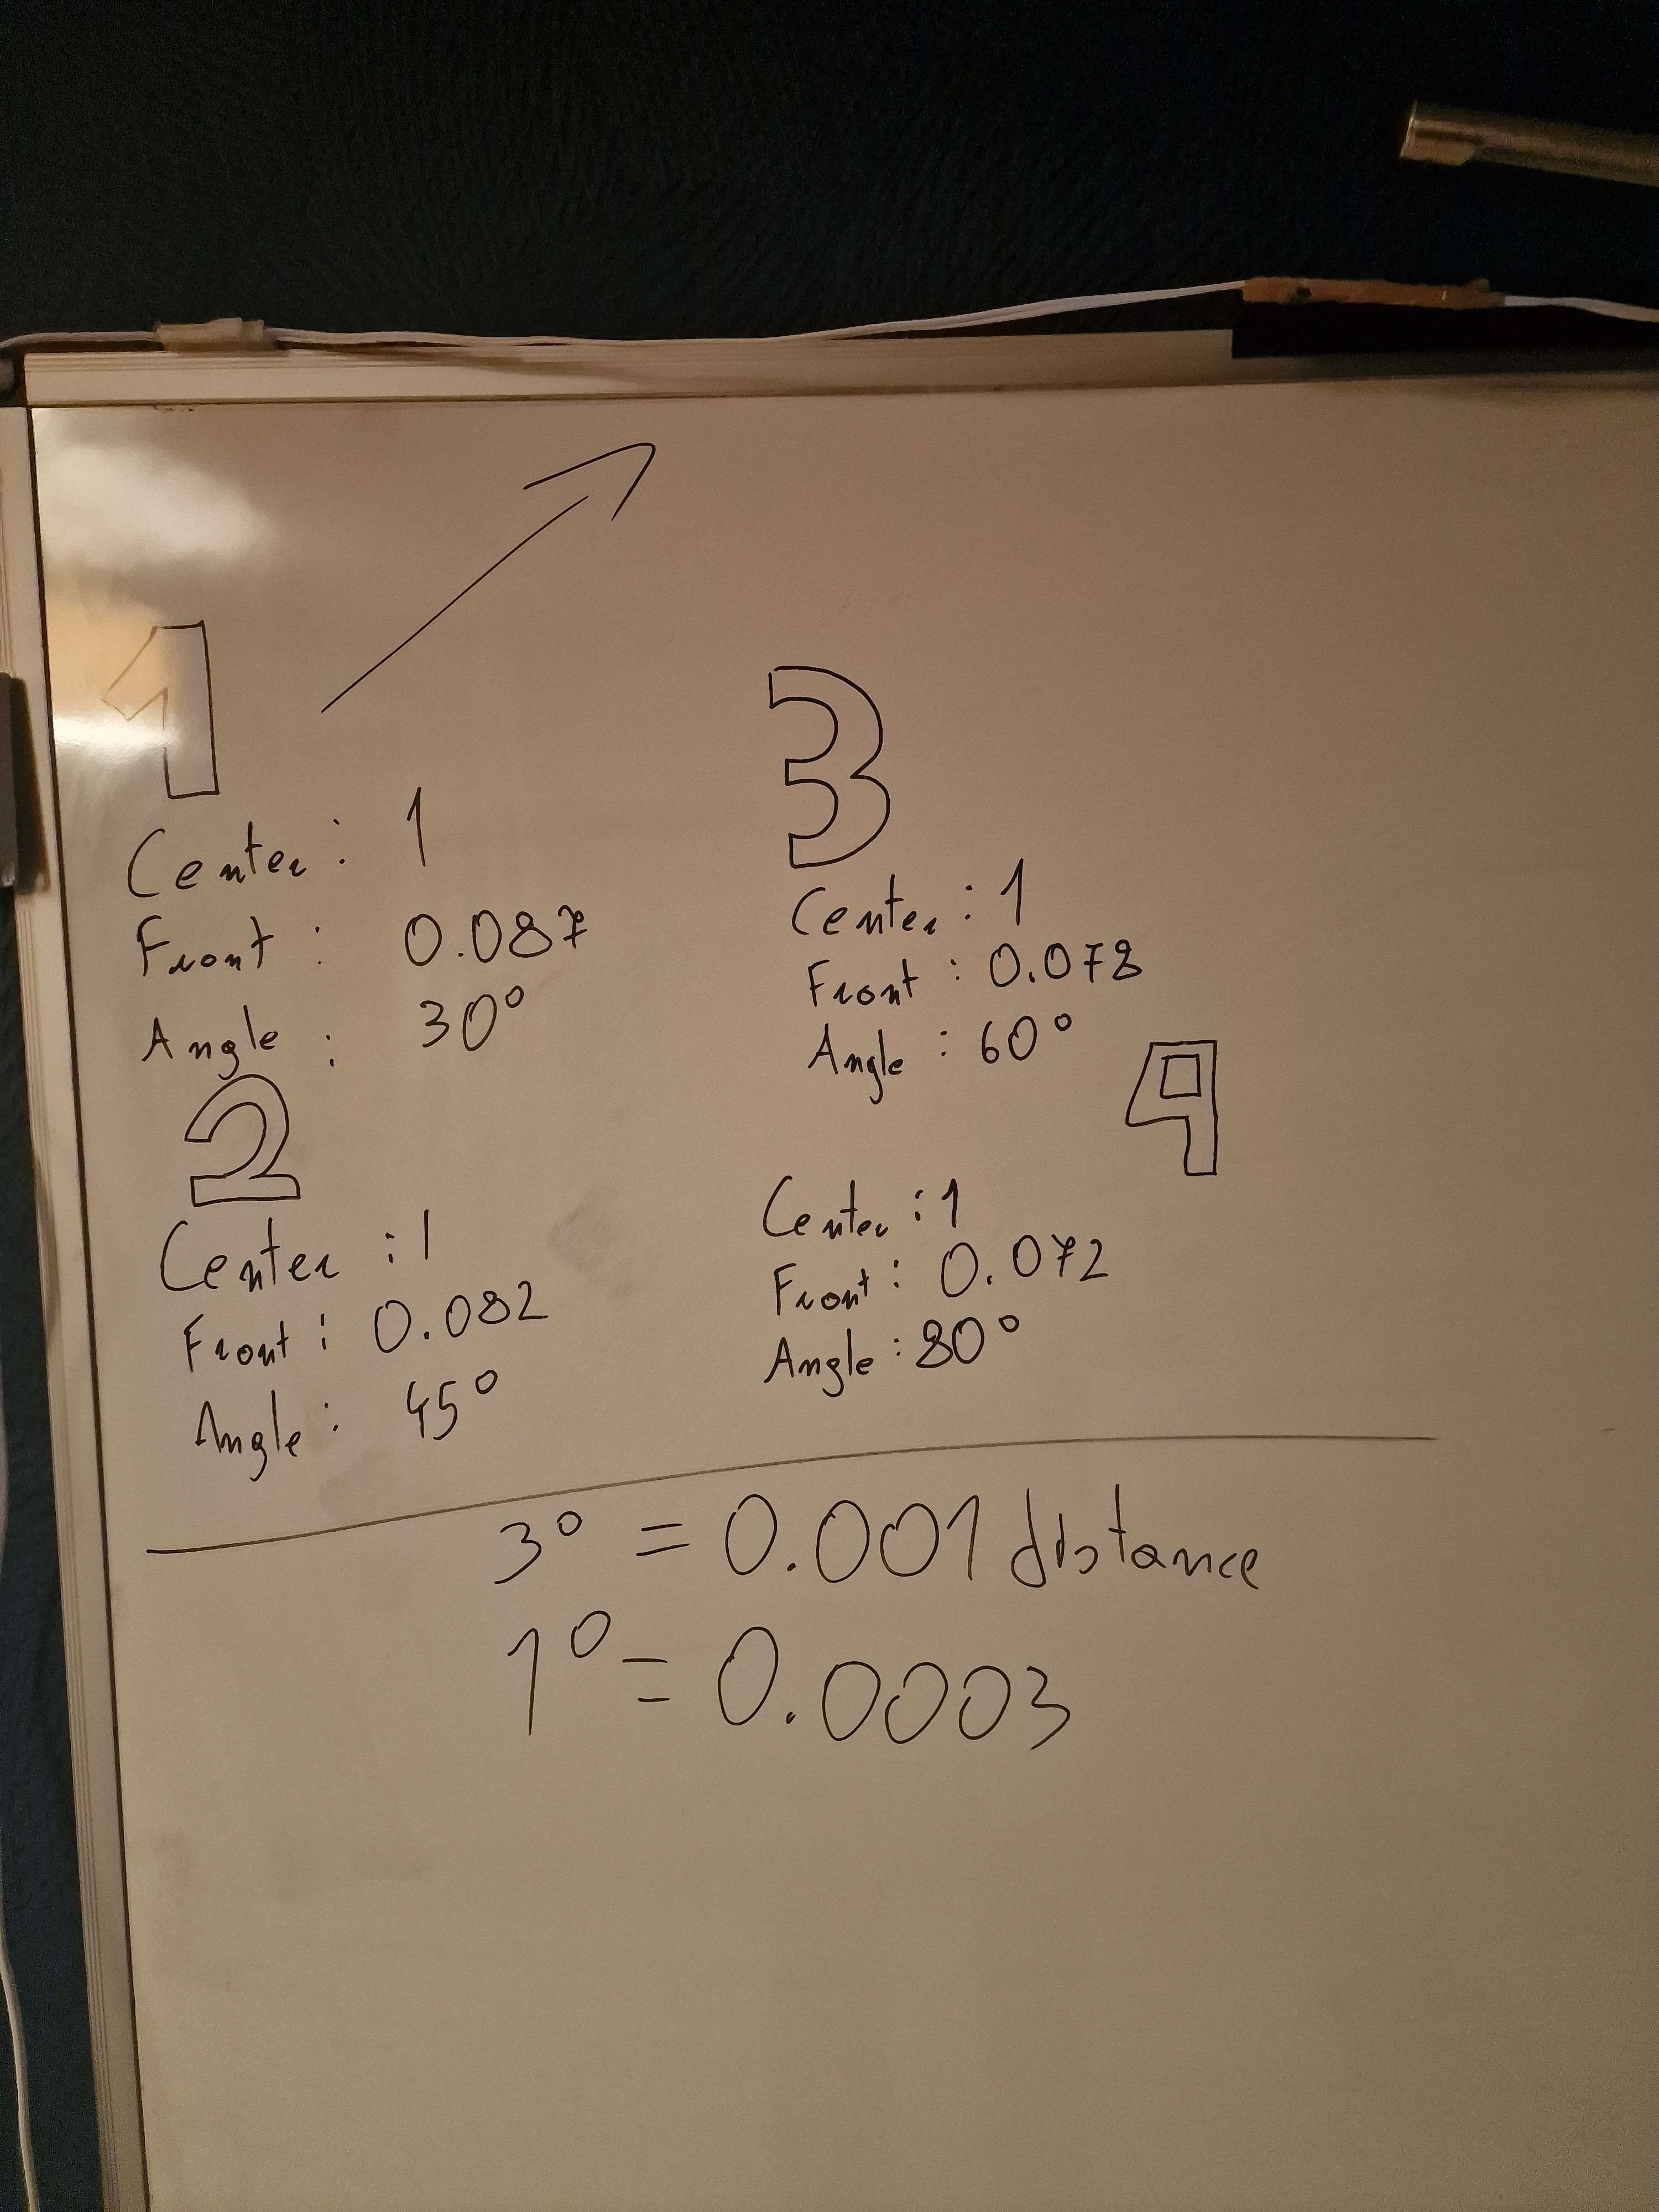 1
Center : 1
Front : 0.087
Angle : 30°
2
Center : 1
Front : 0.082
Angle : 45°
3
Center : 1
Front : 0.078
Angle : 60°
4
Center : 1
Front : 0.072
Angle : 80°
3° = 0.001 distance
1° = 0.0003